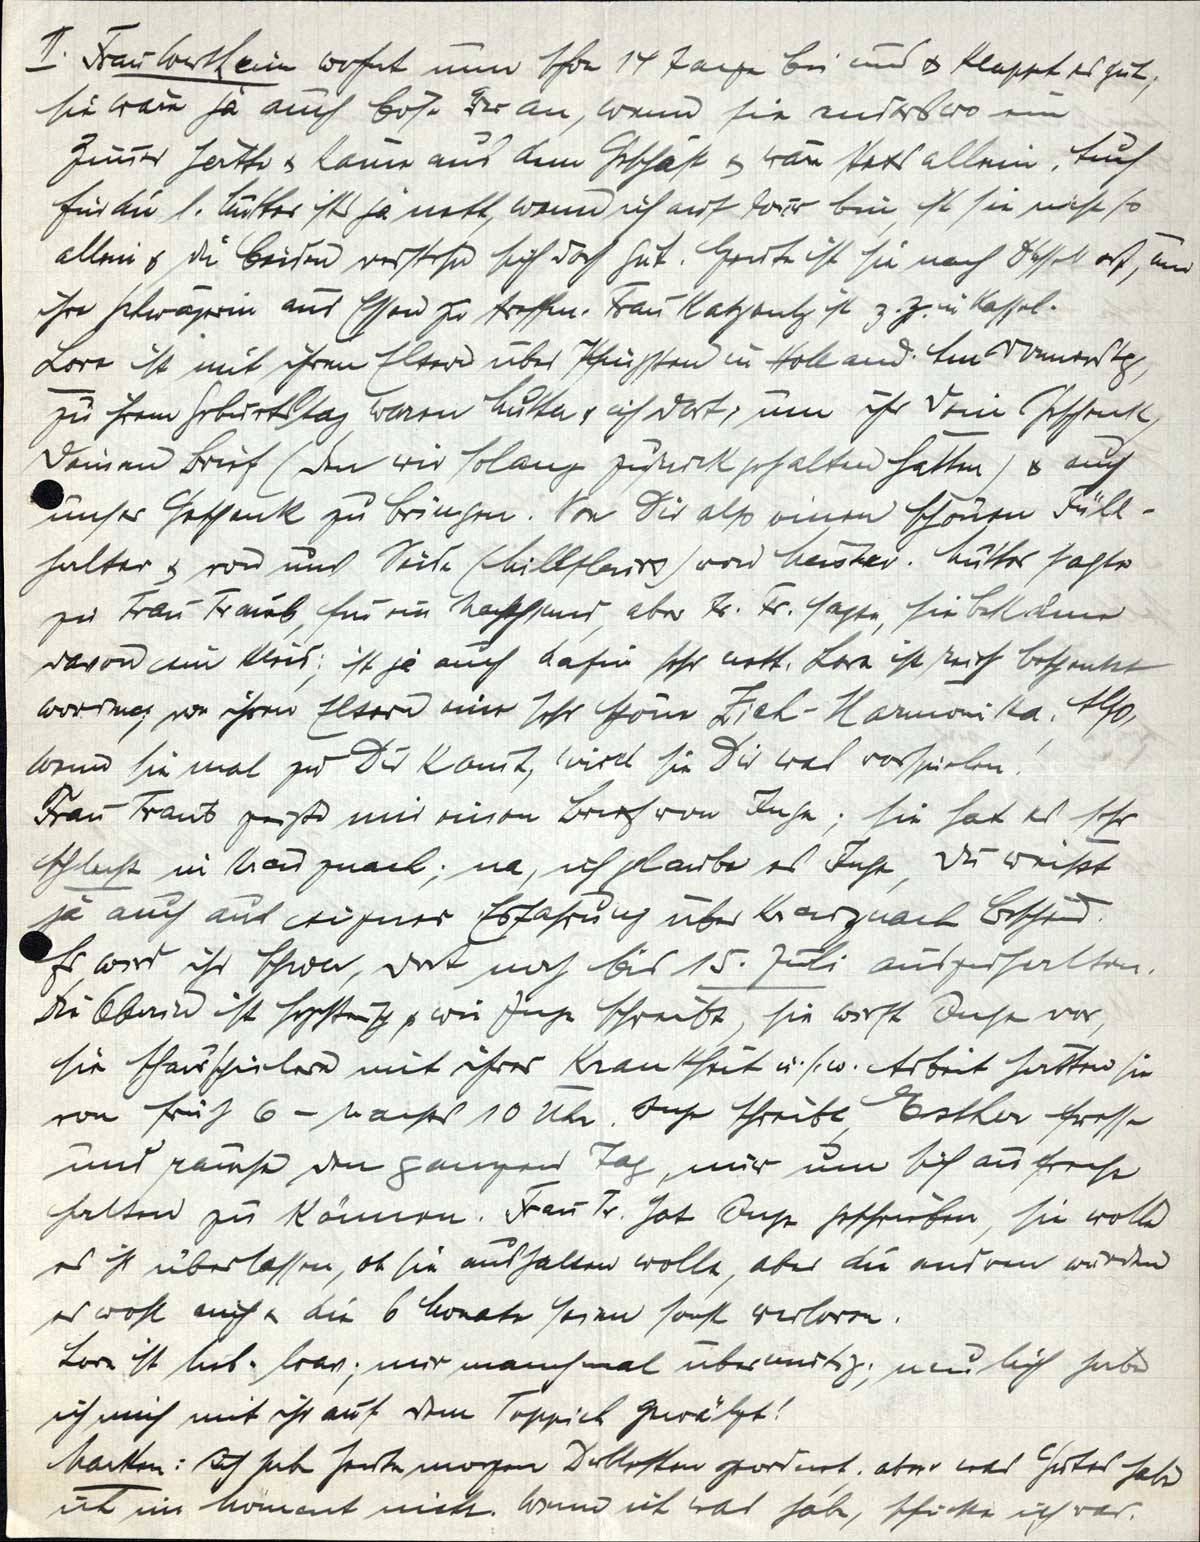 II. Frau Wertheim wohnt nun schon 14 Tage bei uns & klappt es gut,
sie wäre ja auch böse dran, wenn sie anderswo ein
Zimmer hätte & käme aus dem Geschäft & wäre stets allein. Auch
für die l. Mutter ist's ja nett, wenn ich auf Tour bin, ist sie nicht so
allein & die beiden verstehen sich doch gut. Heute ist sie nach Düsseldorf, um
ihre Schwägerin aus Essen zu treffen. Frau Katzenstein ist z. Z. in Kassel.
Lore ist mit ihren Eltern über Pfingsten in Holland. Am Donnerstag,
zu ihrem Geburtstag waren Mutter & ich dort, um ihr Dein Geschenk,
Deinen Brief (den wir solange zurückgehalten hatten) & auch
unser Geschenk zu bringen. Von Dir also einen schönen Füll-
halter & von uns Seide (Millefleurs) von Meister. Mutter sagte
zu Frau Traub, für ein Nachthemd, aber Fr. Tr. sagte, sie bekäme
davon ein Kleid; ist ja auch dafür sehr nett. Lore ist reich beschenkt
worden, von ihren Eltern eine sehr schöne Zieh-Harmonika. Also,
wenn sie mal zu Dir kommt, wird sie Dir was vorspielen!
Frau Traub zeigte mir einen Brief von Inge; sie hat es sehr
schlecht in Kreuznach; na, ich glaube es Inge, Du weisst
ja auch aus eigner Erfahrung über Kreuznach Bescheid.
Es wird ihr schwer, dort noch bis 15. Juli auszuhalten.
Die Oberin ist wie Inge schreibt, sie wirft Inge vor,
sie schauspielere mit ihrer Krankheit u.s.w. Arbeit hätten sie
von früh 6 – nachts 10 Uhr. Inge schreibt, Esther fresse
und rauche den ganzen Tag, nur um sich aufrecht
halten zu können. Frau Tr. hat Inge geschrieben, sie wolle
es ihr überlassen, ob sie aushalten wolle, aber die andren würden
es wohl auch & die 6 Monate seien sonst verloren.
Lore ist lieb & brav; nur manchmal übermütig; neulich habe
ich mich mit ihr auf dem Teppich gewälzt!
Marken: Ich habe heute morgen Doubletten geordnet, aber was Gutes habe
ich im Moment nicht. Wenn ich was habe, schicke ich was.